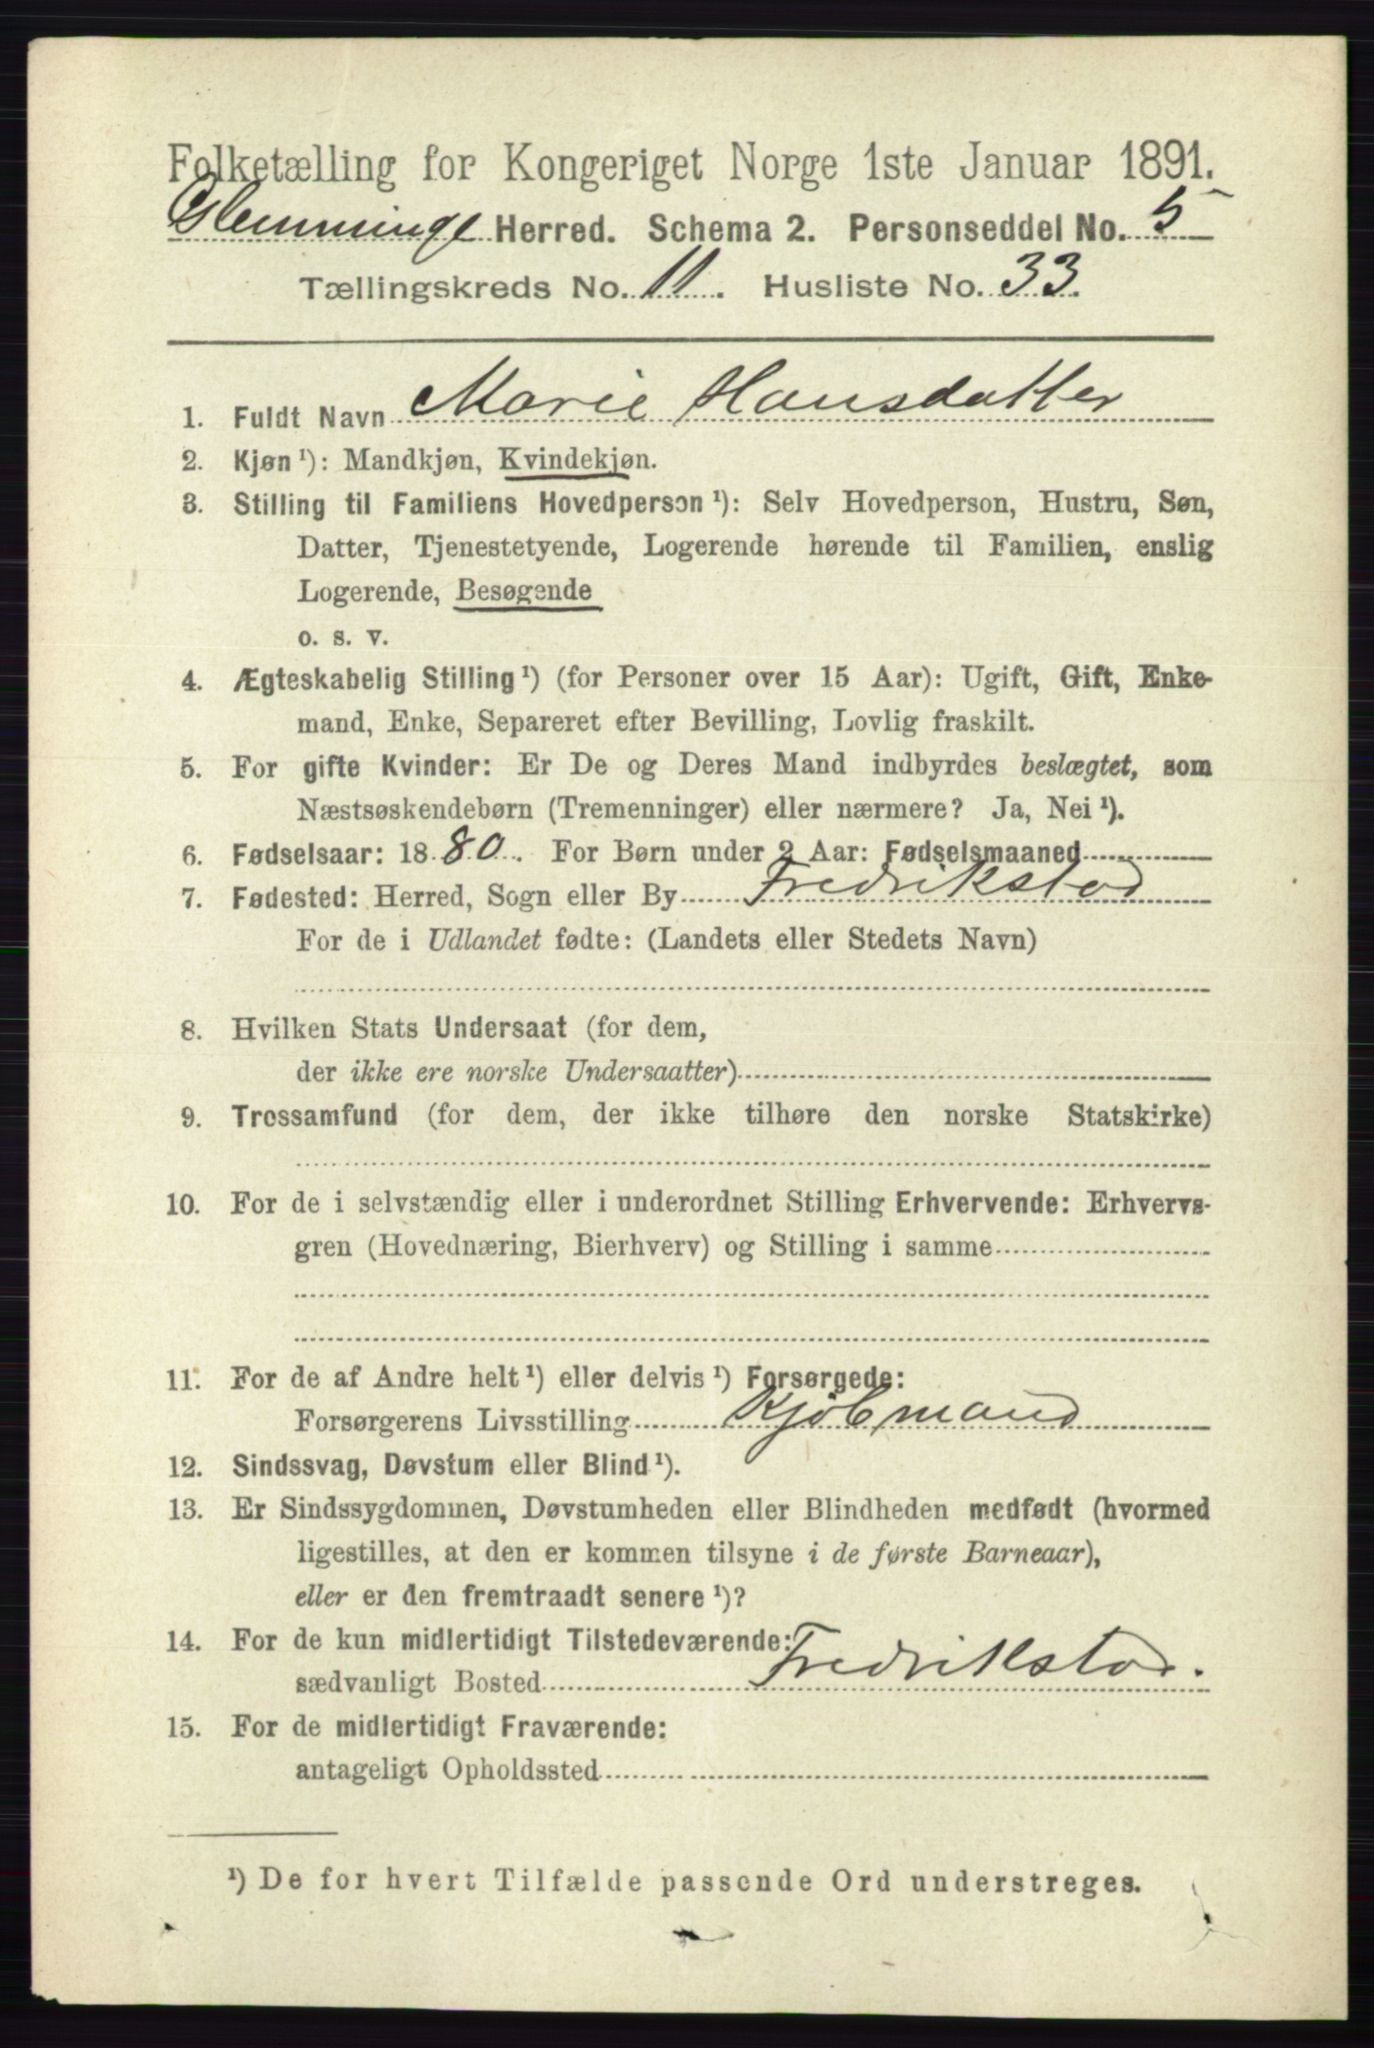 Folketælling for Kongeriget Norge 1ste Januar 1891.
Glemminge Herred. Schema 2. Personseddel No. 5
Tællingskreds No. 11. Husliste No. 33.
1. Fuldt Navn Marie Hansdatter
2. Kjøn ¹): Mandkjøn, Kvindekjøn.
3. Stilling til Familiens Hovedperson ¹): Selv Hovedperson, Hustru, Søn,
Datter, Tjenestetyende, Logerende hørende til Familien, enslig
Logerende, Besøgende
o. s. v.
4. Ægteskabelig Stilling ¹) (for Personer over 15 Aar): Ugift, Gift, Enke-
mand, Enke, Separeret efter Bevilling, Lovlig fraskilt.
5. For gifte Kvinder: Er De og Deres Mand indbyrdes beslægtet, som
Næstsøskendebørn (Tremenninger) eller nærmere? Ja, Nei ¹).
6. Fødselsaar: 1880. For Børn under 2 Aar: Fødselsmaaned
7. Fødested: Herred, Sogn eller By Fredrikstad
For de i Udlandet fødte: (Landets eller Stedets Navn)
8. Hvilken Stats Undersaat (for dem,
der ikke ere norske Undersaatter)
9. Trossamfund (for dem, der ikke tilhøre den norske Statskirke)
10. For de i selvstændig eller i underordnet Stilling Erhvervende: Erhvervs-
gren (Hovednæring, Bierhverv) og Stilling i samme
11. For de af Andre helt ¹) eller delvis ¹) Forsørgede:
Forsørgerens Livsstilling Kjöbmand
12. Sindssvag, Døvstum eller Blind ¹).
13. Er Sindssygdommen, Døvstumheden eller Blindheden medfødt (hvormed
ligestilles, at den er kommen tilsyne i de første Barneaar),
eller er den fremtraadt senere ¹)?
14. For de kun midlertidigt Tilstedeværende:
sædvanligt Bosted Fredrikstad.
15. For de midlertidigt Fraværende:
antageligt Opholdssted
¹) De for hvert Tilfælde passende Ord understreges.